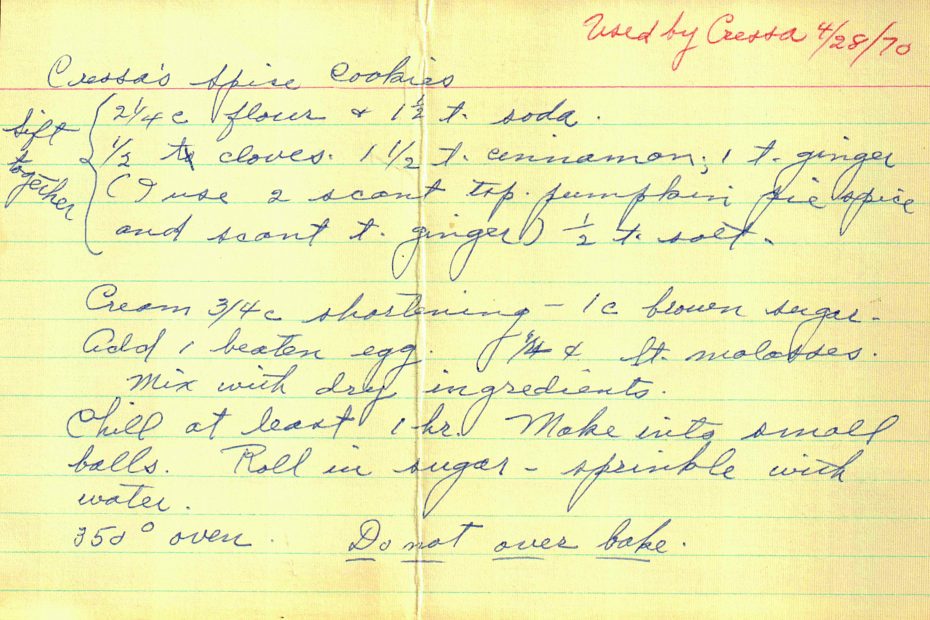 Used by Cressa 4/28/70
Cressa's Spice Cookies
Sift together
2 1/4 c flour & 1 1/2 t. soda.
1/2 t cloves. 1 1/2 t. cinnamon; 1 t. ginger
(I use 2 scant tsp. pumpkin pie spice
and scant t. ginger) 1/2 t. salt.
Cream 3/4 c shortening - 1c brown sugar.
Add 1 beaten egg. 1/4 lt. molasses.
Mix with dry ingredients.
Chill at least 1 hr. Make into small
balls. Roll in sugar - sprinkle with
water.
350° oven. Do not over bake.